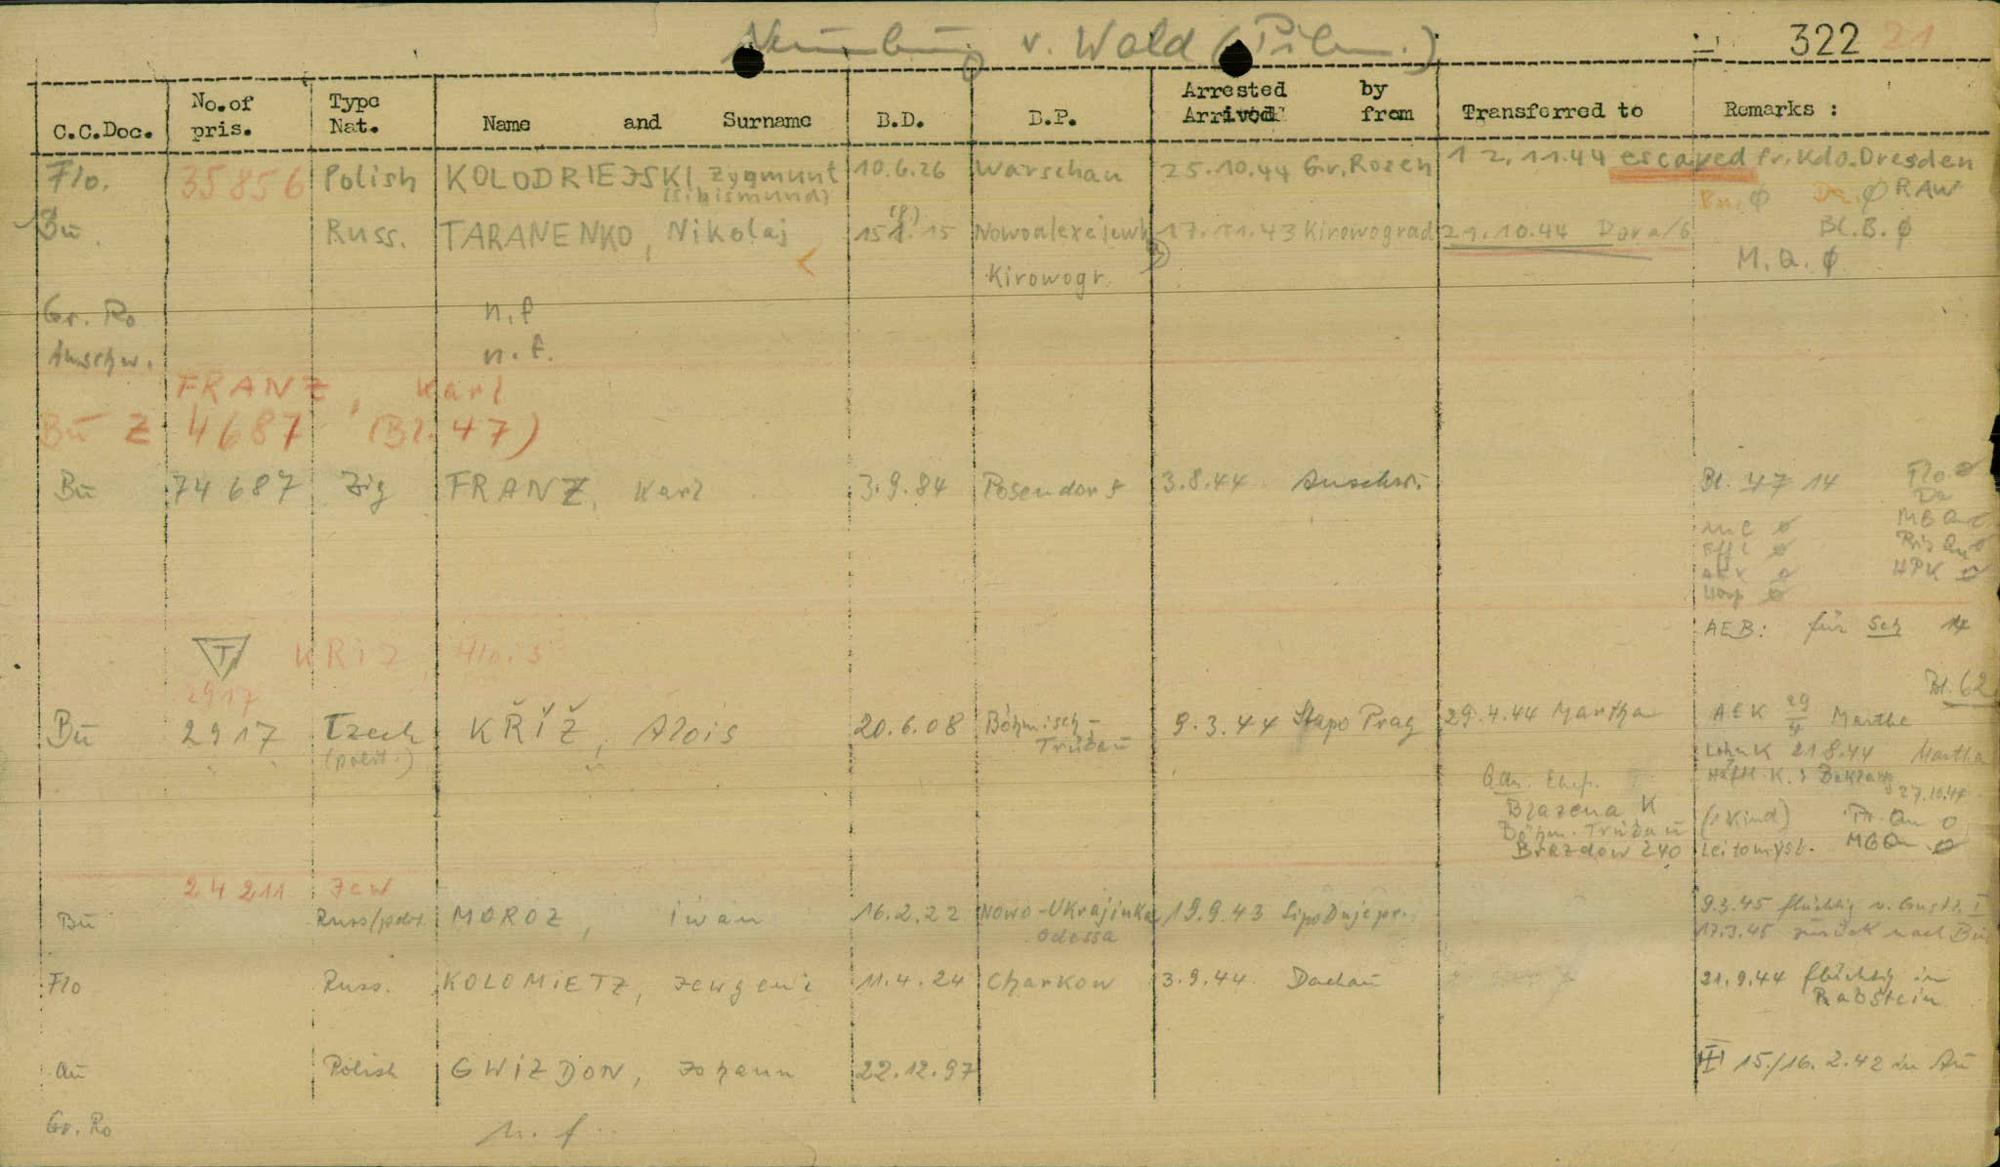 Neunburg v. Wald (Pilm.) 322 21
C.C.Doc. No. of pris. Type Nat. Name and Surname B.D. B.P. Arrested by Arrived from Transferred to Remarks :
Flo. 35856 Polish KOLODRIEJSKI, Zygmunt 10.6.26 Warschau 25.10.44 Gr. Rosen 12.11.44 escaped fr. Kdo. Dresden
(Sigismund) Bu. Ø Da. Ø RAW
Bu. Russ. TARANENKO, Nikolaj 15.1.15 Nowoalexejewk 17.11.43 Kirowograd 21.10.44 Dora/6 Bl.B. Ø
Kirowogr. M.Q. Ø
Gr. Ro n.f
Auschw. n.f.
FRANZ, Karl
Bu Z 4687 (Bl. 47)
Bu 74687 Zig FRANZ, Karl 3.9.84 Posendorf 3.8.44 Auschw. Bl. 47 14 Flo Ø
Da
MB Qu
Ø
AEK Ø HPK Ø
AEB: für Sch 14
T KRIZ, Alois
2917 Bl. 62
Bu 2917 Tzech KŘÍŽ, Alois 20.6.08 Böhmisch- 9.3.44 Stapo Prag 29.4.44 Martha AEK 29/4 Martha
(polit.) Trübau
LohnK 21.8.44 Martha
27.10.44
Ehefr.
Blazena K (1 Kind) Qu o
Böhm. Trübau
Brazdow 240 Leitomysl. MBQu Ø
24211 Jew
Bu Russ/polit. MOROZ, Iwan 16.2.22 Nowo-Ukrajinka 19.9.43 Sipo Dnjepr. 9.3.45 flüchtig v. Gustl. I
Odessa 17.3.45 zurück nach Bu
Flo Russ. KOLOMIETZ, Jewgeni 11.4.24 Charkow 3.9.44 Dachau 21.9.44 flüchtig in
Rabstein
Au Polish GWIZDON, Johann 22.12.97 15./16.2.42 in Au
Gr. Ro n.f.